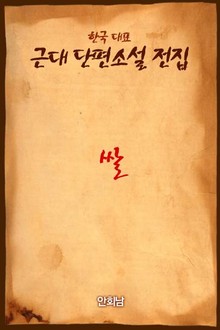 한국 대표
근대 단편소설 전집
쌀
안회남